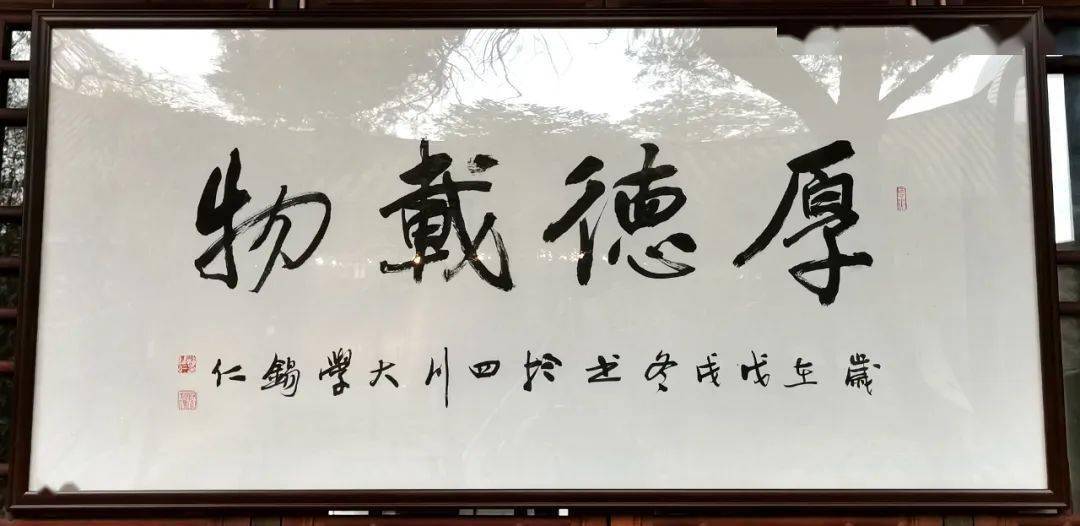 厚德載物
歲在戊戌冬书於四川大學錫仁